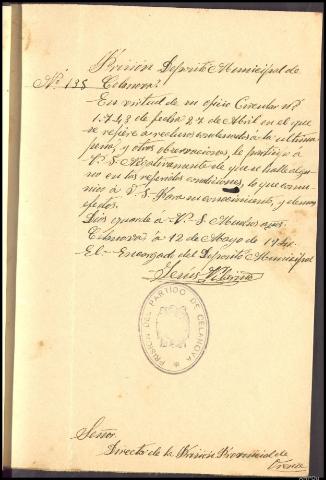 Prisión Deposito Municipal de
Nº 135 Celanova
En virtud de su oficio Circular nº
1.743 de fecha 27 de Abril en el que
se refiere a reclusos condenados a la ultima
pena, y otras observaciones, le participo á
Vª S. Negativamente de que se halle algu-
no en las referidas condiciones, lo que comu-
nico á V. S. para su conocimiento, y demas
efectos.
Dios guarde á Vª S. Muchos años.
Celanova á 12 de Mayo de 1941.
El Encargado del Deposito Municipal
Jesús
PRISION DEL PARTIDO DE CELANOVA
Señor
Director de la Prisión Provincial de
Orense